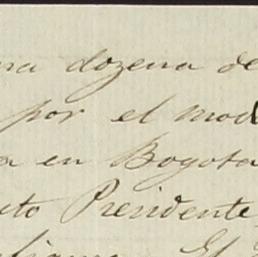 na dozena de
por el mod
a en Bogota
uto Presidente
El